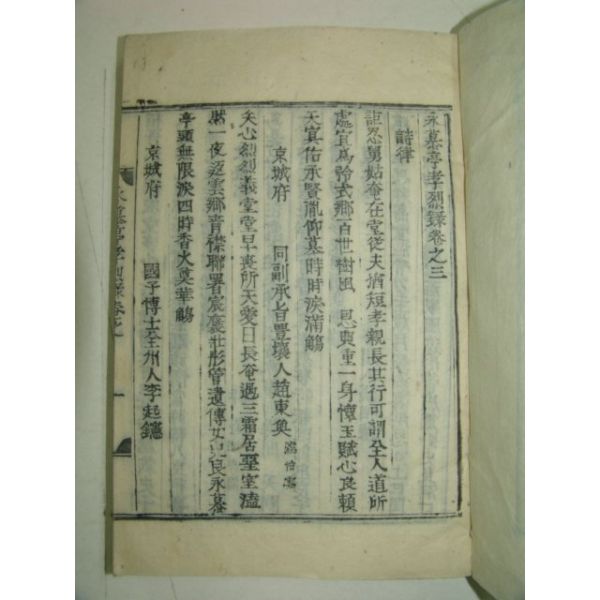 永慕亭孝烈錄卷之三
詩律
詎忍舅姑奄在堂從夫猶短孝親長其行可謂全人道所
處宜爲矜式鄉百世樹風恩典重一身懷玉賦心良賴
天宜佑承賢胤仰慕時時淚滿觴
京城府 同副承旨豊壤人趙東奭
矢心烈烈義堂堂早喪所天愛日長奄過三霜居堊室溘
然一夜返雲鄉靑襟聯署宸褒壯彤管遺傳女史良永慕
亭頭無限淚四時香火奠華觴
京城府 國子博士全州人李起鑣
永慕亭孝烈錄卷之